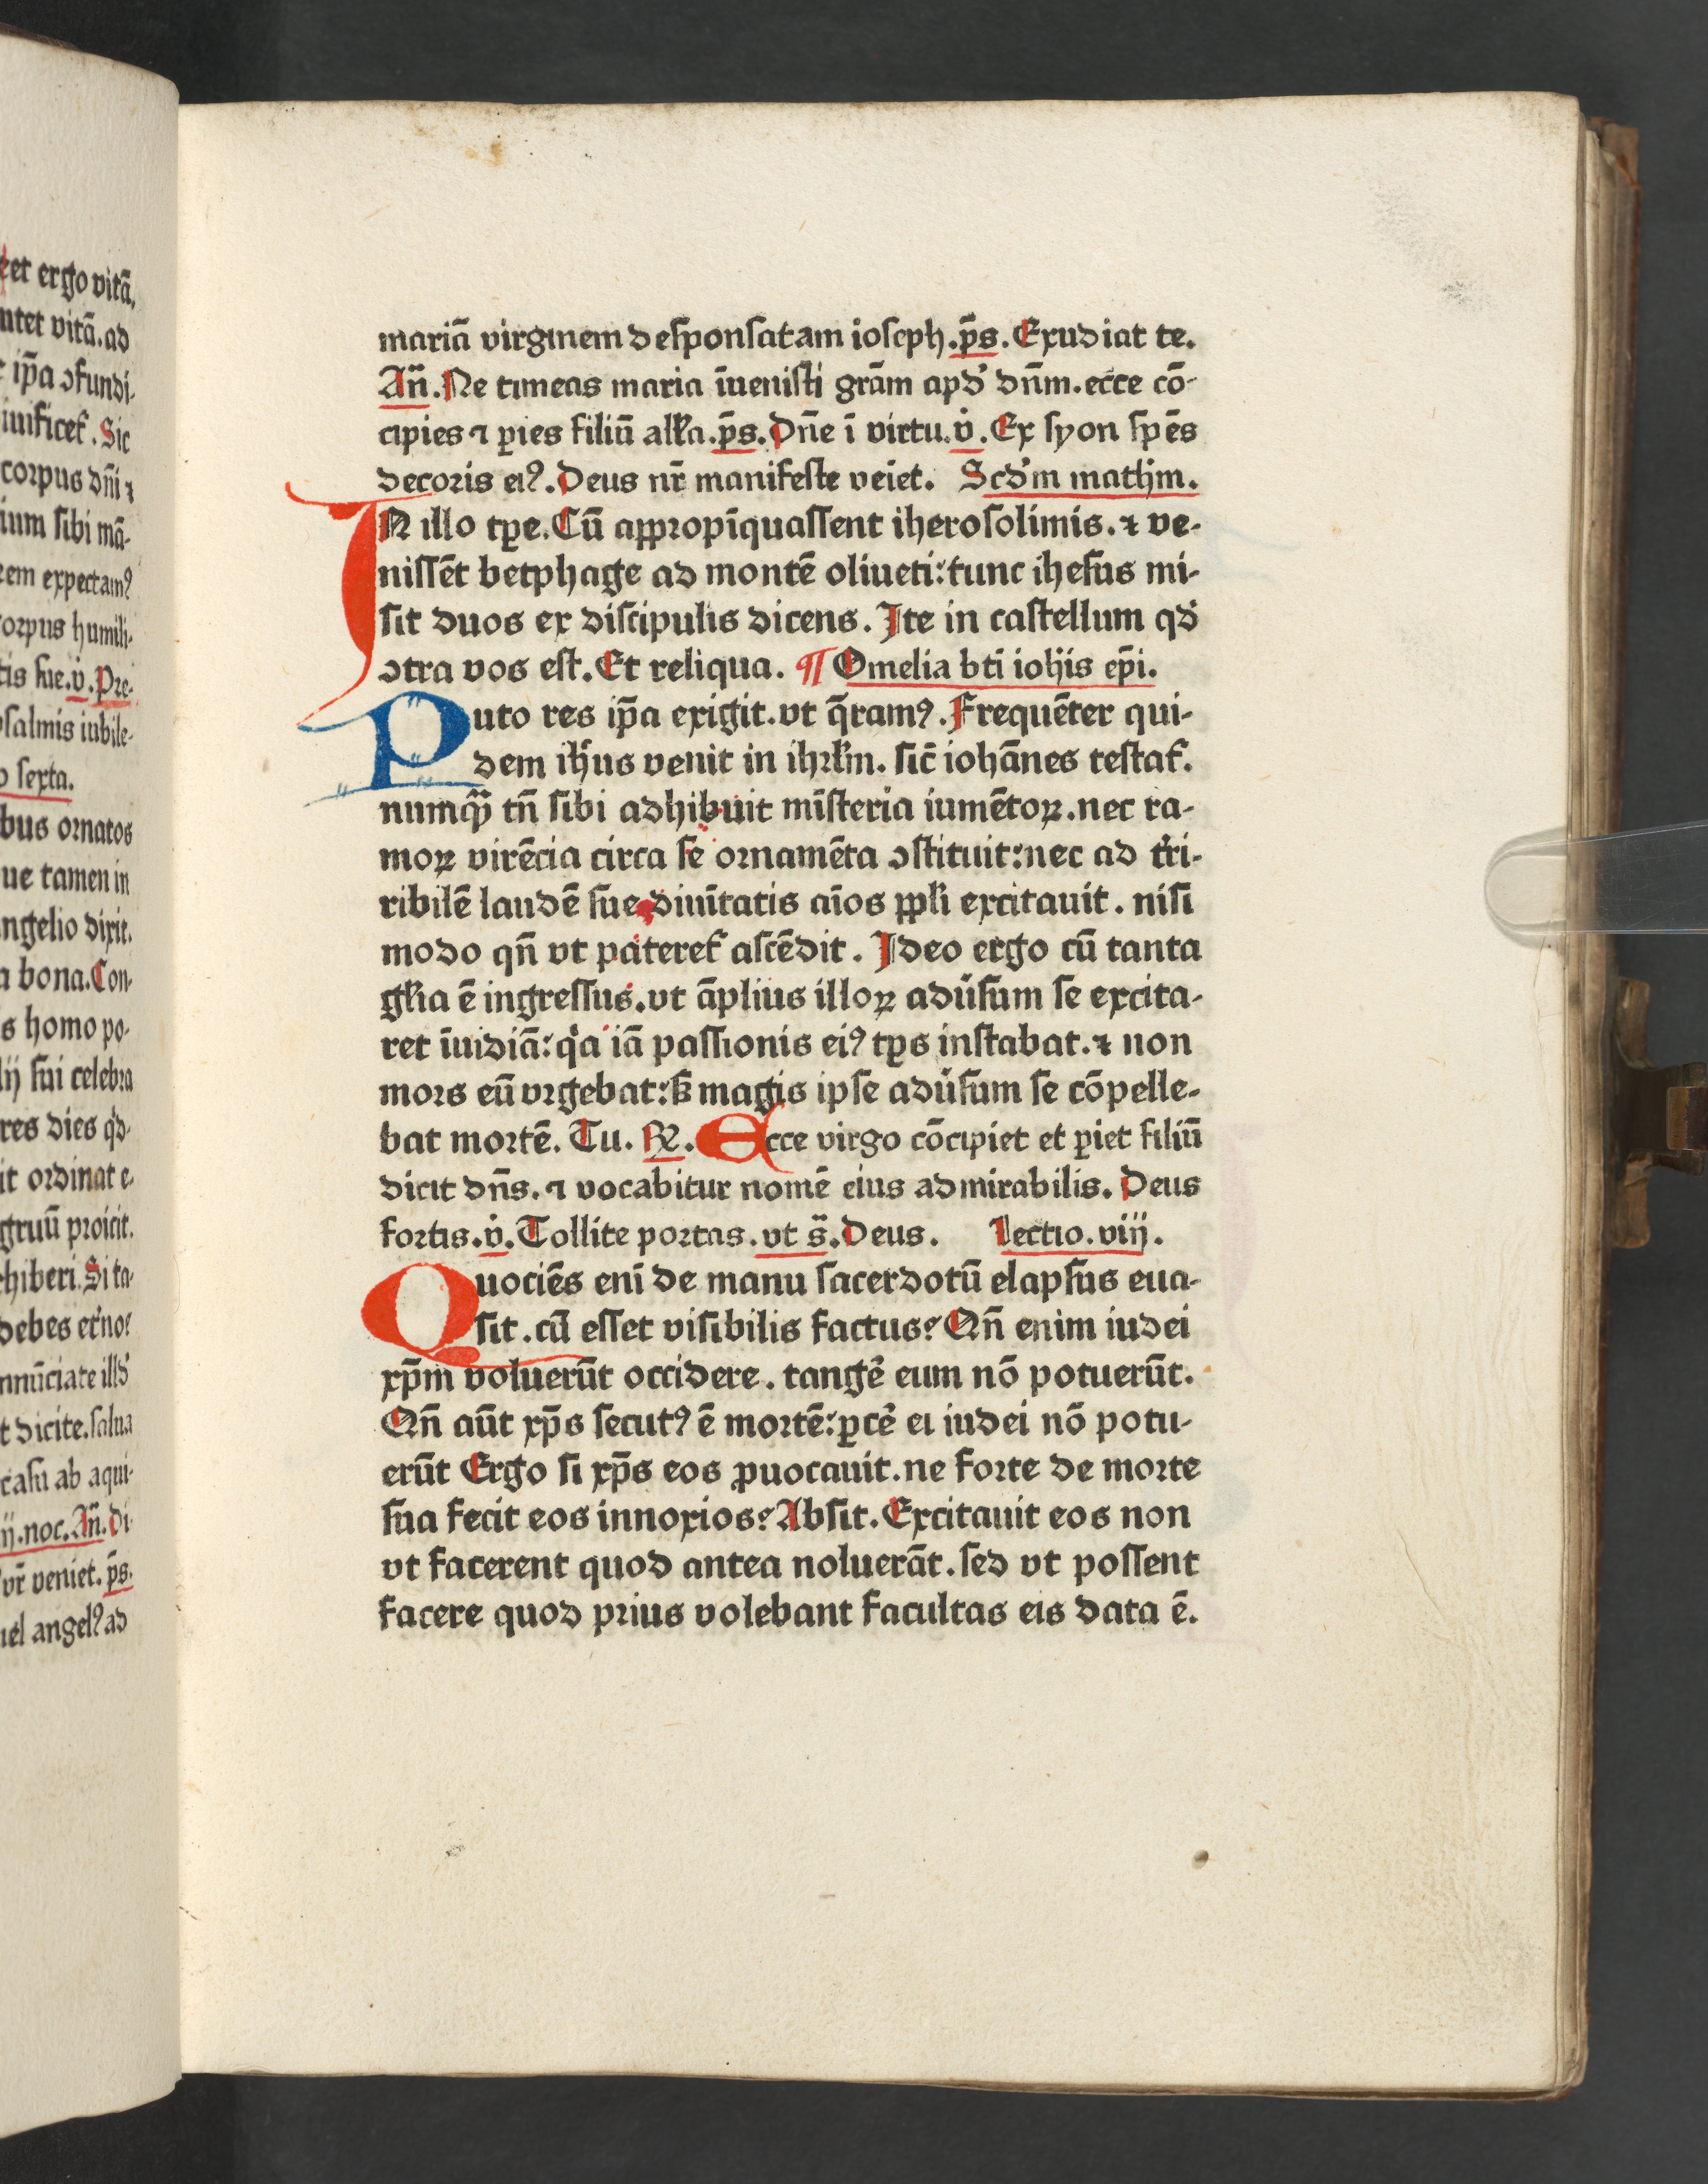 eet ergo vitā.
ntet vitā. ad
ip̄a ɔfundi-
iuificet᷑. Sic
corpus dn̄i ⁊
ium ſibi mā-
eem expectamꝰ
orpus humili-
tis ſue. v̇. Pre-
pſalmis iubile-
o ſexta.
bus ornatos
ue tamen in
ngelio dixit.
a bona. Con-
s homo po-
lij ſui celebra
res dies qd̓-
it ordinat e-
gruū proicit.
hiberi. Si ta-
debes et᷑noꝝ
nnūciate illd̓
t dicite. ſalua
caſu ab aqui-
ij. noc. An̄. Di-
vr̄ veniet. p̄s.
iel angelꝰ ad
mariā virginem deſponſatam ioſeph. p̄s. Exudiat te.
An̄. Ne timeas maria īueniſti grām apd̓ dn̄m. ecce cō-
cipies ⁊ ꝑies filiū alƚa. p̄s. Dn̄e ī virtu. v̇. Ex ſyon ſpēs
decoris eiꝰ. Deus nr̄ manifeſte veīet. Scd̓m mathm̄.
IN illo tp̄e. Cū aꝓpropīquaſſent iheroſolimis. ⁊ ve-
niſſēt betphage ad montē oliueti: tunc iheſus mi-
ſit duos ex diſcipulis dicens. Ite in caſtellum qd̓
ɔtra vos eſt. Et reliqua. ¶ Omelia bt̄i ioh̄is ep̄i.
Puto res ip̄a exigit. vt q̄ramꝰ. Frequēter qui-
dem ih̓us venit in ihrƚm. ſic̄ iohānes teſtat᷑.
numꝙ̄ tn̄ ſibi adhibuit mīſteria iumētoꝝ. nec ra-
moꝝ virēcia circa ſe ornamēta ɔſtituit: nec ad t᷑ri-
ribilē laudē ſue diuītatis aīos ꝓpƚi excitauit. niſi
modo qn̄ vt pateret᷑ aſcēdit. Ideo ergo cū tanta
gƚia ē ingreſſus. vt āplius illoꝝ adu᷑ſum ſe excita-
ret īuidiā: qͥa iā paſſionis eiꝰ tp̄s inſtabat. ⁊ non
mors eū vrgebat: ſꝫ magis ipſe adu᷑ſum ſe cōpelle-
bat mortē. Tu. ℟. Ecce virgo cōcipiet et ꝑiet filiū
dicit dn̄s. ⁊ vocabitur nomē eius admirabilis. Deus
fortis. v̇. Tollite portas. vt s̄. Deus. Lectio. viij.
Quociēs enī de manu ſacerdotū elapſus eua-
ſit. cū eſſet viſibilis factus? Qn̄ enim iudei
xp̄m voluerūt occidere. tangē᷑ eum nō potuerūt.
Qn̄ aūt xp̄s ſecutꝰ ē mortē: ꝑcē᷑ ei iudei nō potu-
erūt Ergo ſi xp̄s eos ꝓuocauit. ne forte de morte
ſua fecit eos innoxios? Abſit. Excitauit eos non
vt facerent quod antea noluerāt. ſed vt poſſent
facere quod prius volebant facultas eis data ē.